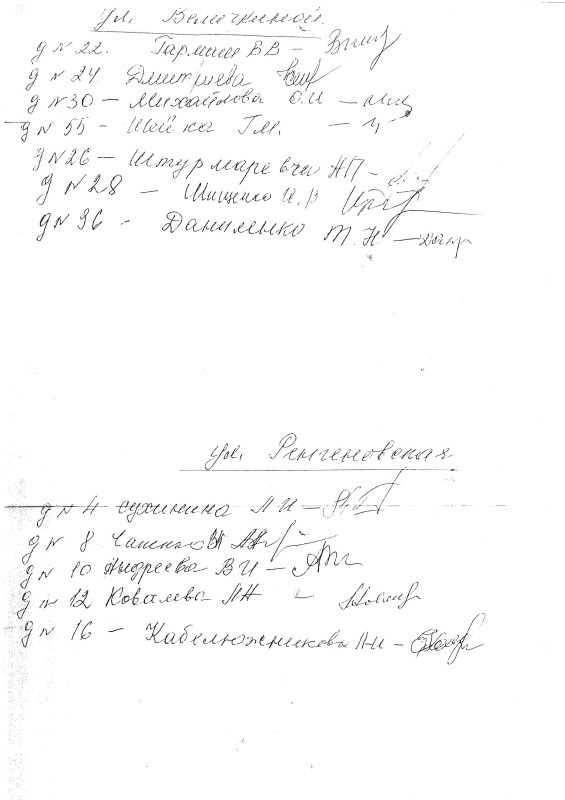 ул. Величкиной.
д № 22. Гармаш В В –
д № 24 Дмитриева
д № 30 – Михайлова О.И –
д № 55 – Шейка Г.М. –
д № 26 – А П –
д № 28 – Шищенко И.В
д № 36 - Даниленко Т. Н –
ул. Ренгеновская
д № 4 Сухинина Л И –
д № 8
д № 10 Андреева В И –
д № 12 Ковалева Л Н –
д № 16 – Кабелюжникова Л И –